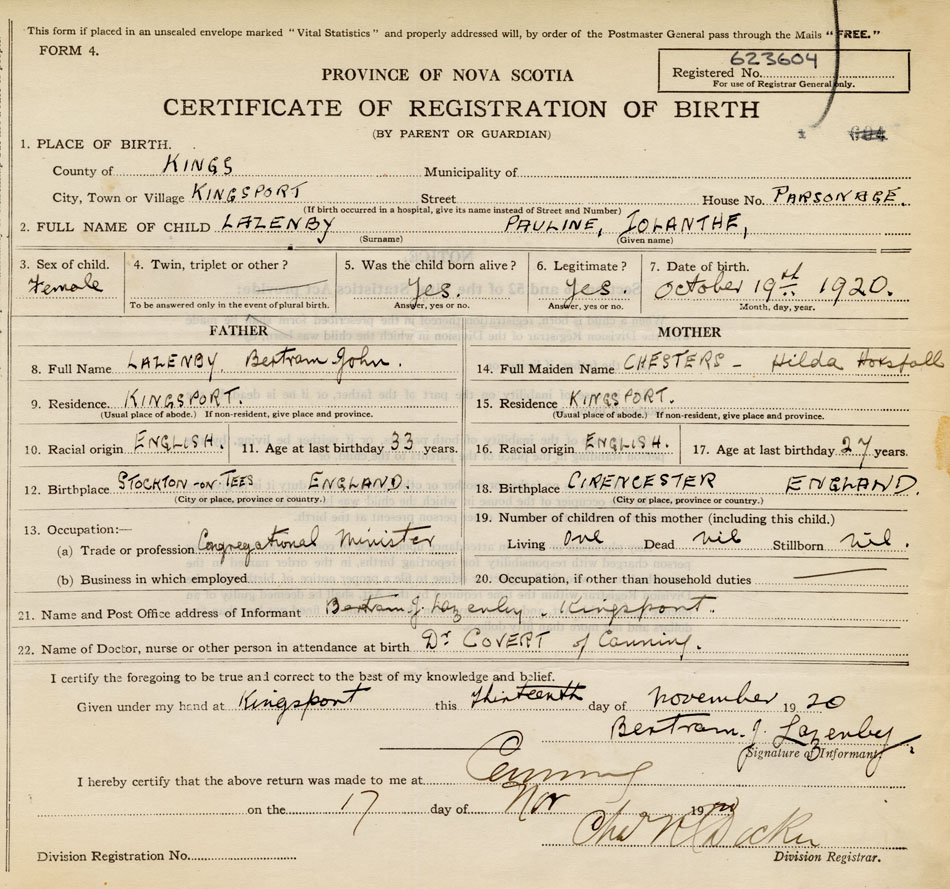 This form if placed in an unsealed envelope marked "Vital Statistics" and properly addressed will, by order of the Postmaster General pass through the Mails "FREE."
FORM 4.
623604
Registered No.
For use of Registrar General only.
PROVINCE OF NOVA SCOTIA
CERTIFICATE OF REGISTRATION OF BIRTH
(BY PARENT OR GUARDIAN)
604
1. PLACE OF BIRTH.
County of KINGS Municipality of
City, Town or Village KINGSPORT Street House No. PARSONAGE.
(If birth occurred in a hospital, give its name instead of Street and Number)
2. FULL NAME OF CHILD LAZENBY PAULINE, IOLANTHE,
(Surname) (Given name)
3. Sex of child. 4. Twin, triplet or other? 5. Was the child born alive? 6. Legitimate? 7. Date of birth.
Female Yes. Yes. October 19th 1920.
To be answered only in the event of plural birth. Answer, yes or no. Answer, yes or no. Month, day, year.
FATHER MOTHER
8. Full Name LAZENBY. Bertram John. 14. Full Maiden Name CHESTERS - Hilda Horsfall
9. Residence. KINGSPORT. 15. Residence KINGSPORT.
(Usual place of abode.) If non-resident, give place and province. (Usual place of abode.) If non-resident, give place and province.
10. Racial origin ENGLISH. 11. Age at last birthday 33 years. 16. Racial origin ENGLISH. 17. Age at last birthday 27 years.
12. Birthplace STOCKTON-ON-TEES ENGLAND. 18. Birthplace CIRENCESTER ENGLAND.
(City or place, province or country.) (City or place, province or country.)
13. Occupation:— 19. Number of children of this mother (including this child.)
(a) Trade or profession Congregational Minister Living One Dead Nil Stillborn Nil.
(b) Business in which employed 20. Occupation, if other than household duties
21. Name and Post Office address of Informant Bertram J. Lazenby Kingsport.
22. Name of Doctor, nurse or other person in attendance at birth Dr COVERT of Canning.
I certify the foregoing to be true and correct to the best of my knowledge and belief.
Given under my hand at Kingsport this thirteenth day of November 1920
Bertram. J. Lazenby
Signature of Informant.
I hereby certify that the above return was made to me at Canning
on the 17 day of Nov 1920
Division Registration No. Division Registrar.